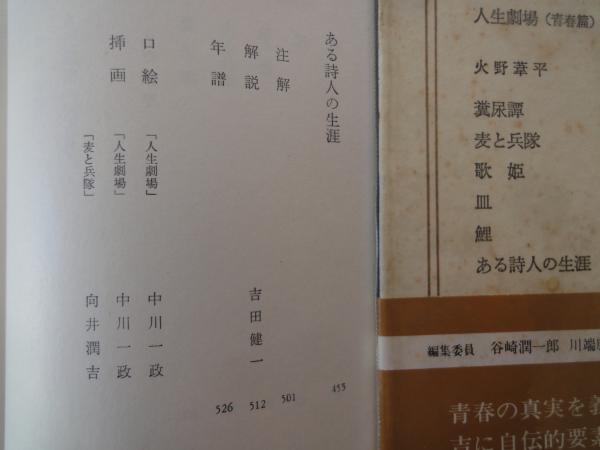 ある詩人の生涯 455
注解 501
解説 吉田健一 512
年譜 526
口絵 「人生劇場」 中川一政
挿画 「人生劇場」 中川一政
「麦と兵隊」 向井潤吉
人生劇場(青春篇)
火野葦平
糞尿譚
麦と兵隊
歌姫
皿
鯉
ある詩人の生涯
編集委員 谷崎潤一郎 川端
青春の真実を義
吉に自伝的要素